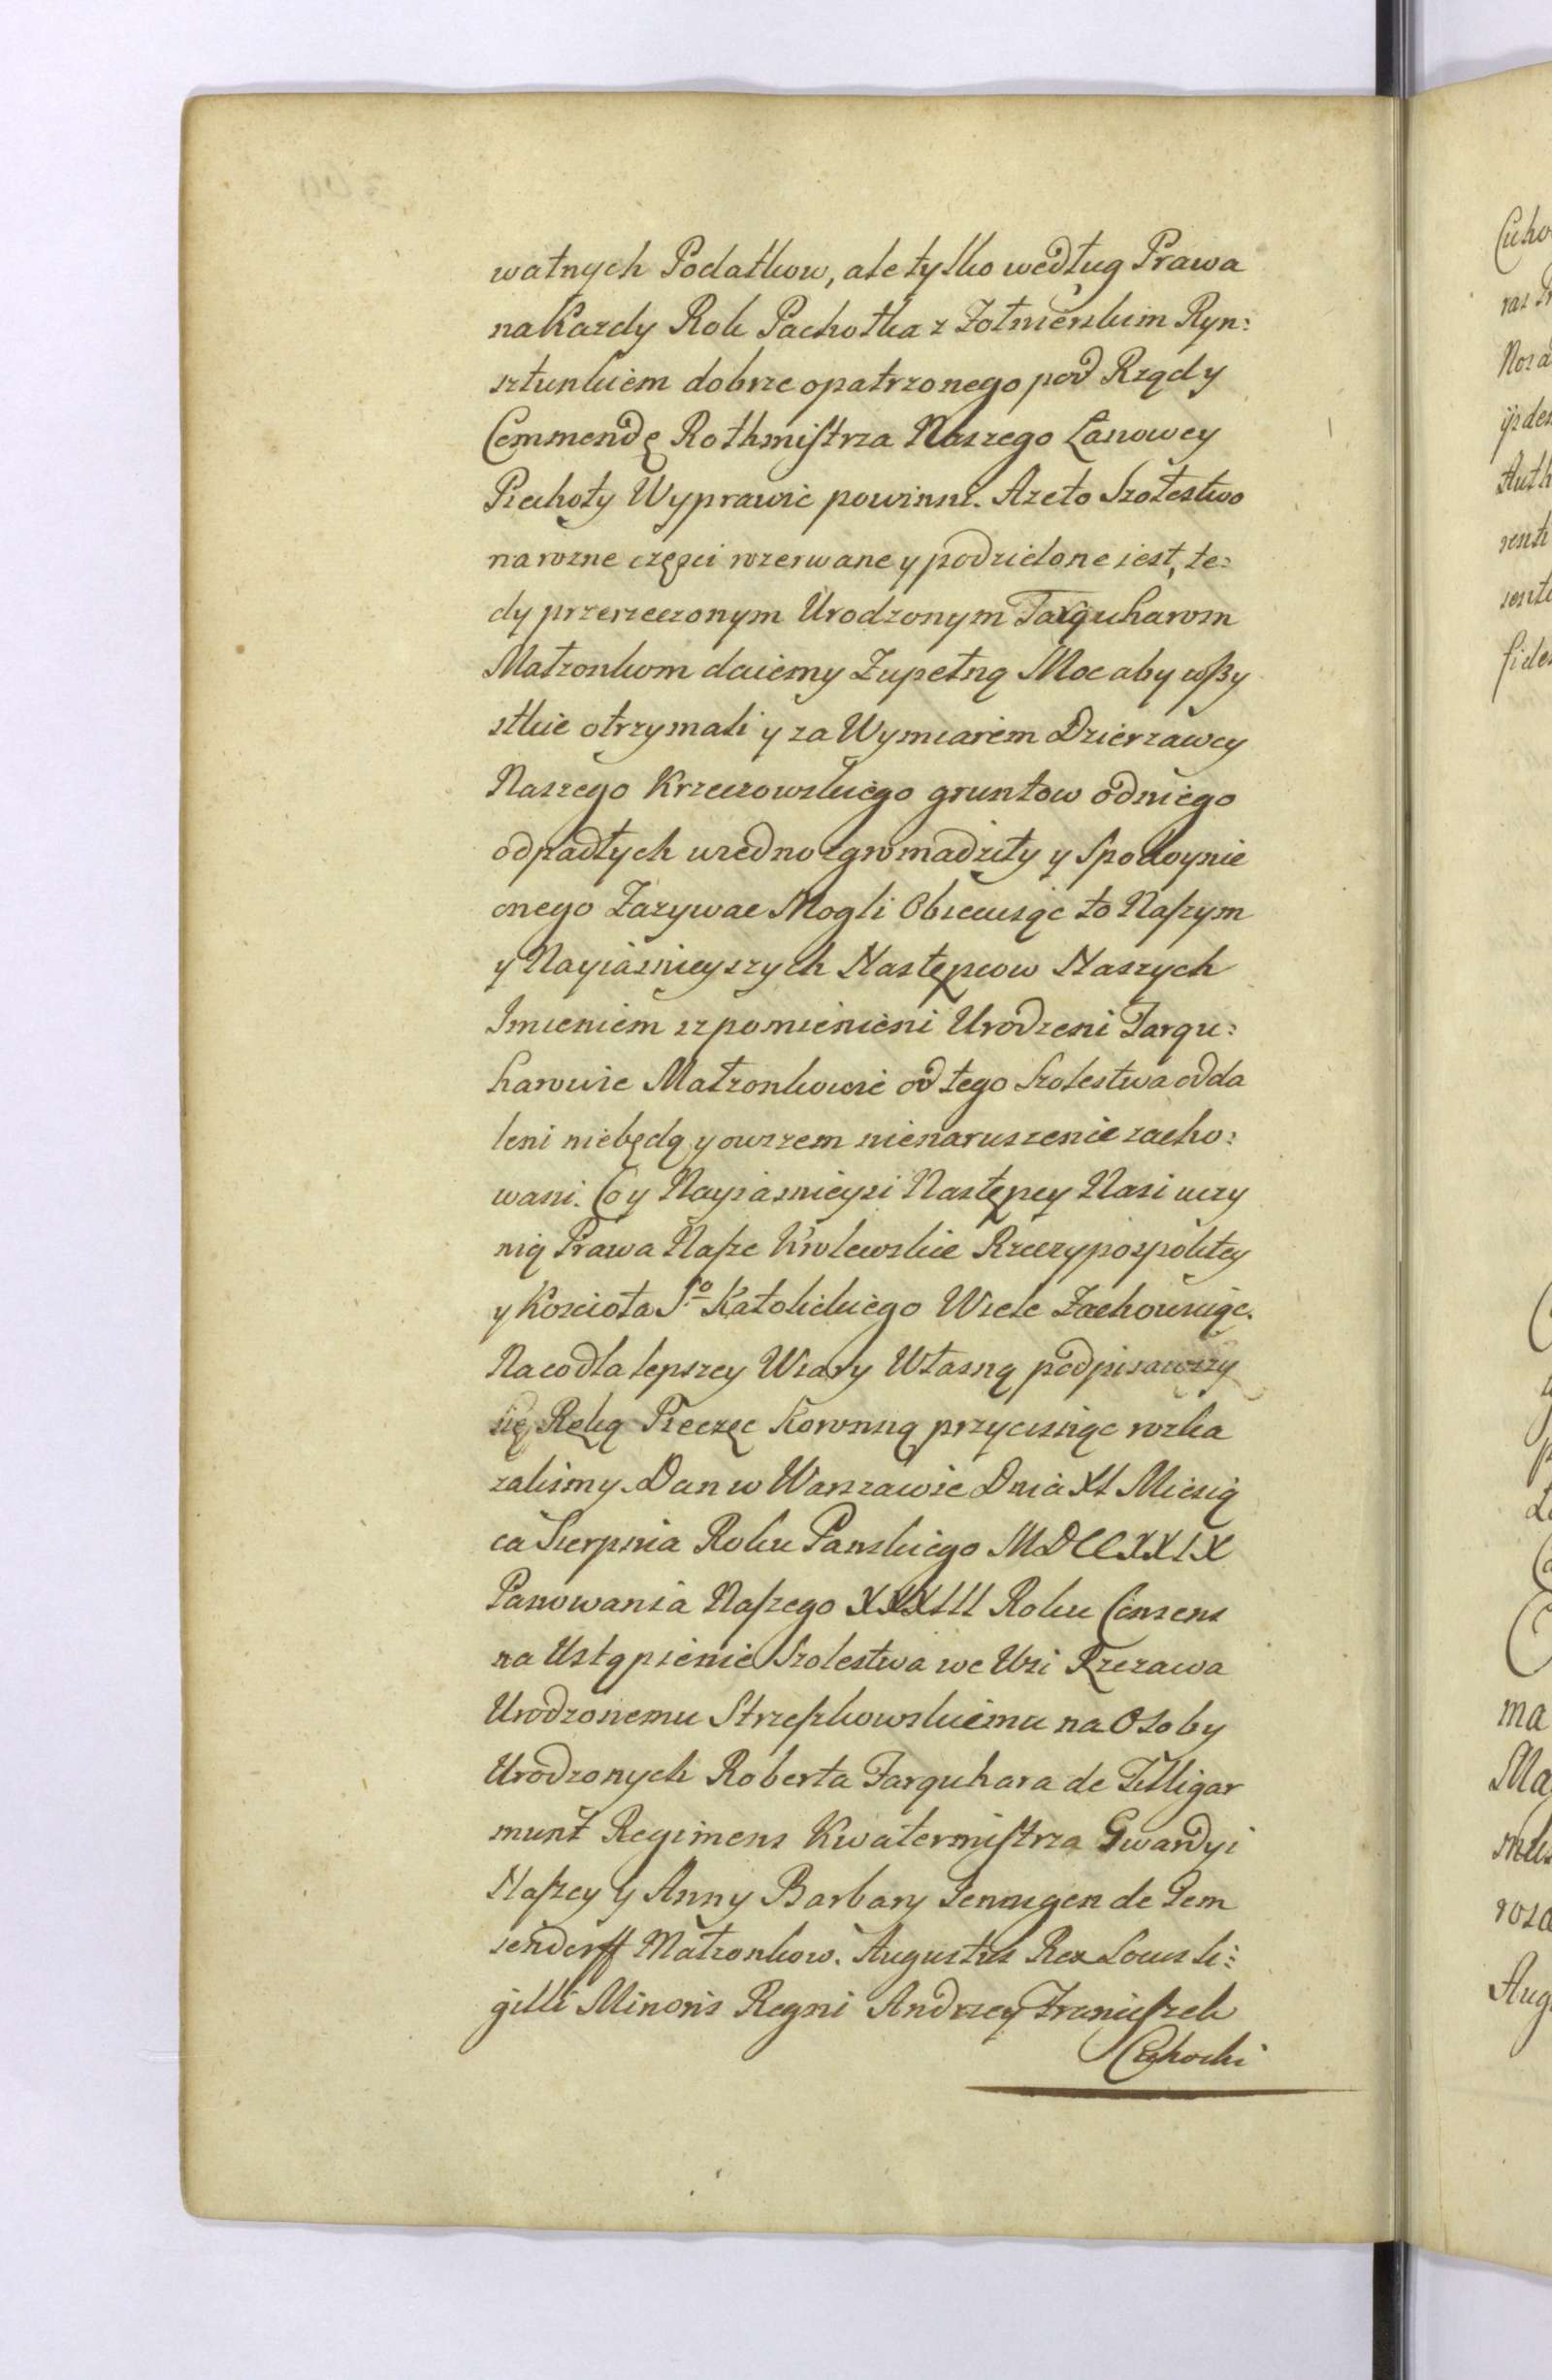 watnych Podatkow, ale tylko według Prawa
na Kazdy Rok Pachołka z Zołnierskim Ryn:
sztunkiem dobrze opatrzonego pod Rządy
Commendę Rothmistrza Naszego Łanowey
Piechoty Wyprawic powinni. Aze to Szołestwo
na rozne częsci rozerwane y podzielone iest, te:
dy przerzeczonym Urodzonym Farquharom
Małzonkom daiemy Zupełną Moc aby wszy
stkie otrzymali y za Wymiarem Dzierzawcy
Naszego Krzeczowskiego gruntow od niego
odpadłych w iedno zgromadziły y Spokoynie
onego Zazywac Mogli Obiecuiąc to Naszym
y Nayiasnieyszych Następcow Naszych
Imieniem iz pomienieni Urodzeni Farqu:
harowie Małzonkowie od tego Szolestwa odda
leni niebędą y owszem nienaruszenie zacho:
wani. Co y Nayiasnieysi Następcy Nasi uczy
nią Prawa Nasze Krolewskie Rzeczypospolitey
y Koscioła S.go Katolickiego Wcele Zachowuiąc.
Na co dla lepszey Wiary Własną podpisawszy
się Ręką Pieczęc Koronną przycisnąc rozka
zalismy. Dan w Warszawie Dnia XI Miesią
ca Sierpnia Roku Panskiego MDCCXXIX
Panowania Naszego XXXIII Roku Consens
na Ustąpienie Szolestwa we Wsi Rzezawa
Urodzonemu Strzeszkowskiemu na Osoby
Urodzonych Roberta Farquhara de Tilligar
munt Regimens Kwatermistrza Gwardyi
Naszey y Anny Barbary de
Małzonkow. Augustus Rex Locus Si:
gilli Minoris Regni Andrzey Franciszek
Cichocki